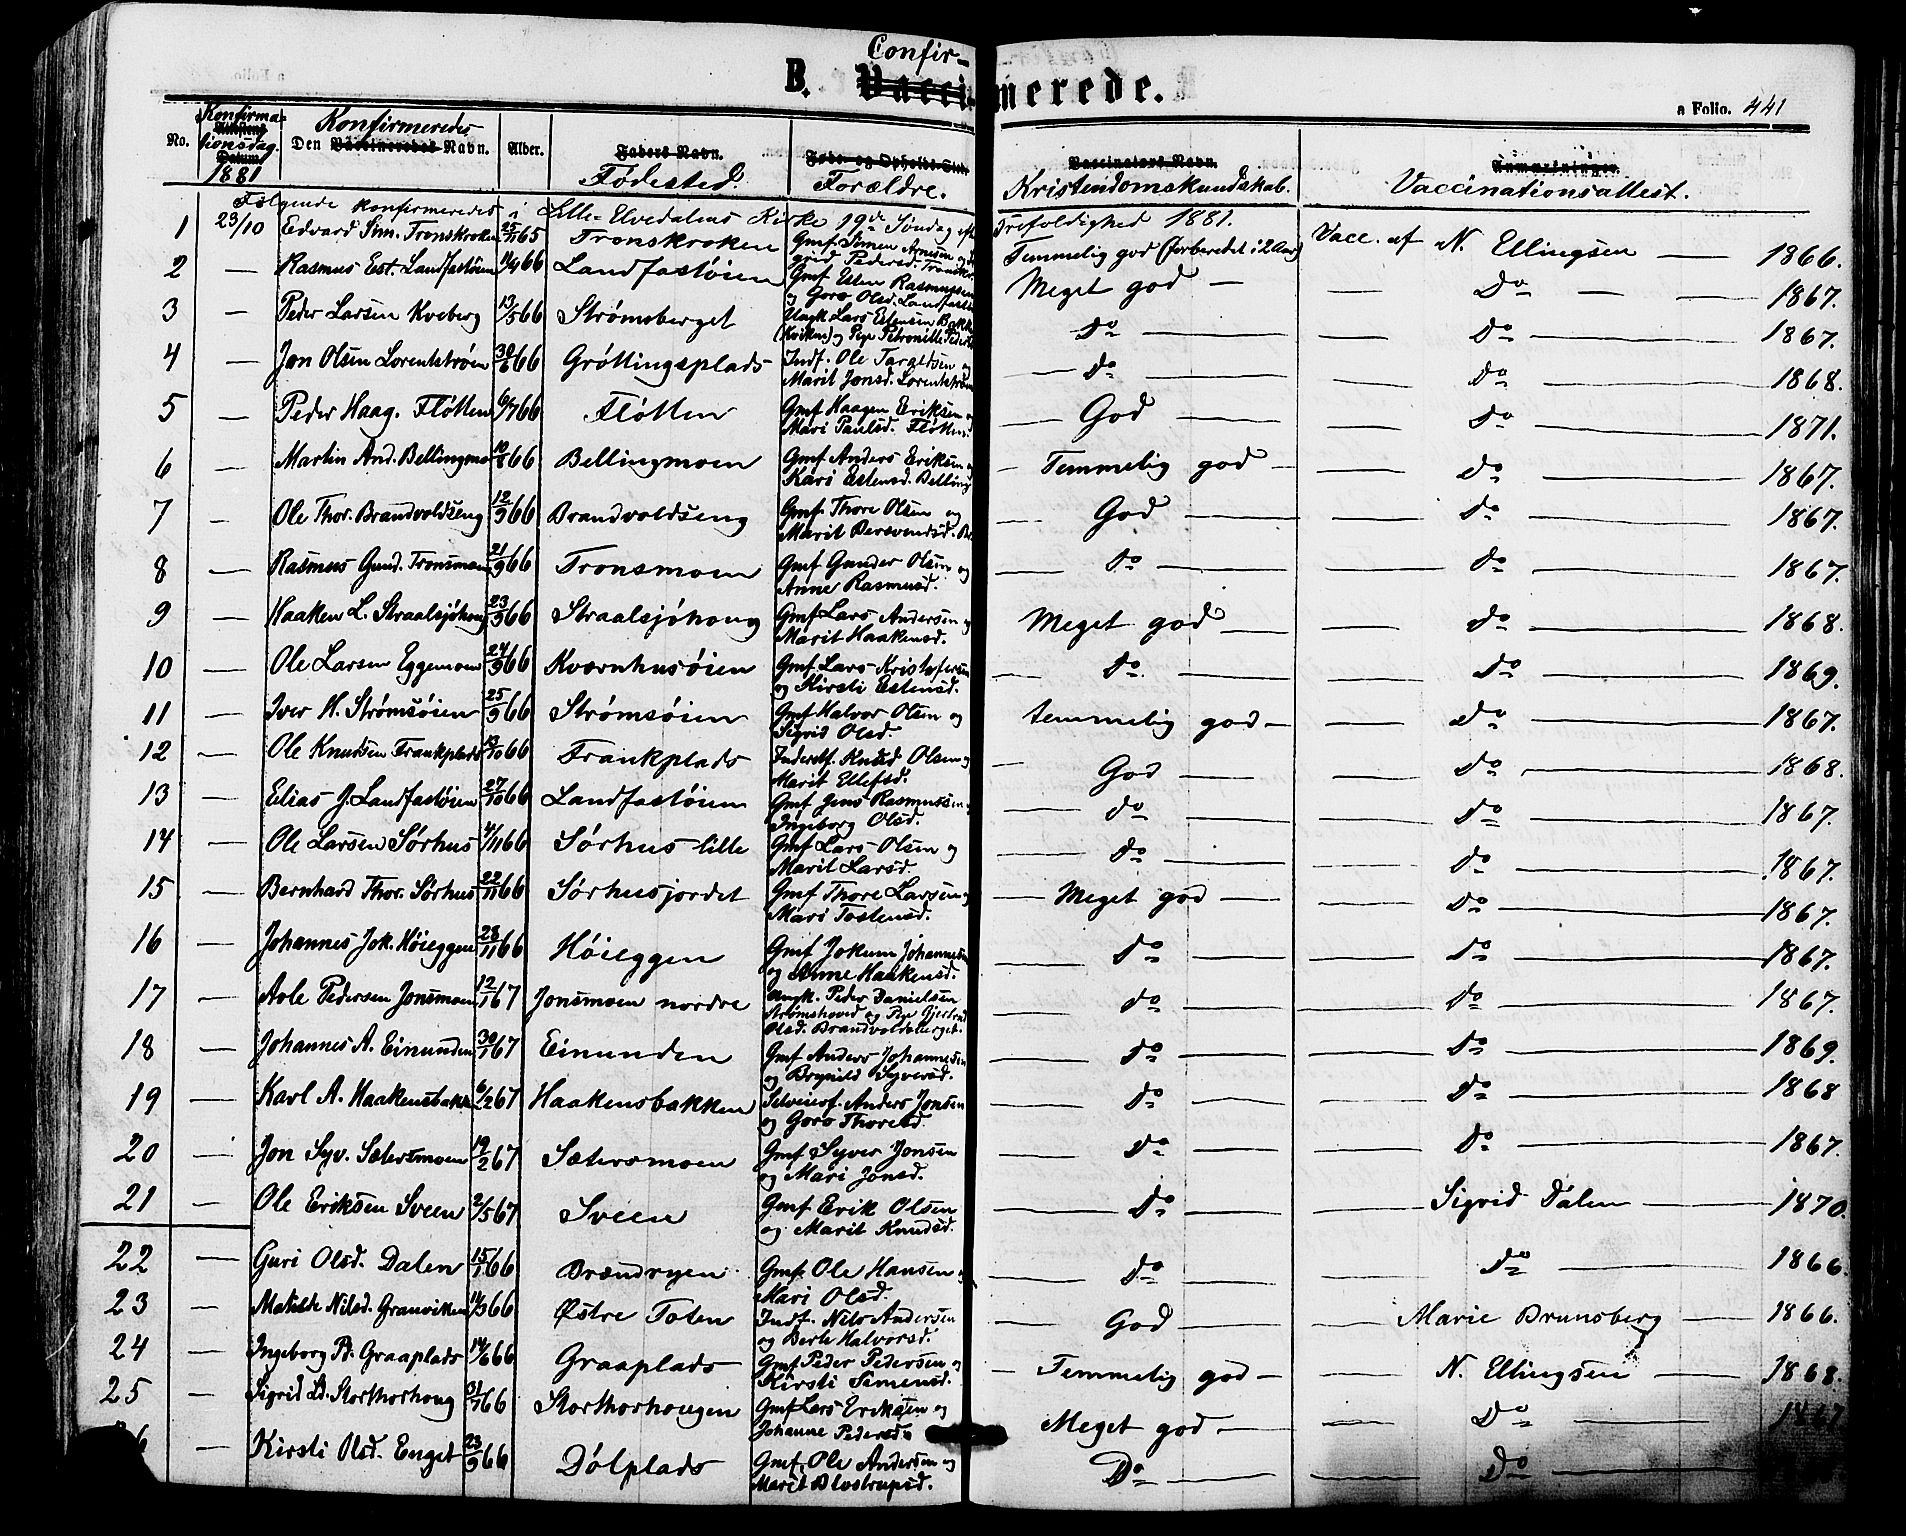 Confir-
B. Vacci- nerede.
a Folio. 441
No. Konfirma- tionsdag. 1881 | Konfirmeredes Den Vaccineredes Navn. | Alder. | Faders Navn. Fødested. | Føde- og Opholds-Sted Forældre. | Vaccinators Navn. Kristendomskundskab. | Anmærkninger. Vaccinationsattest.
Følgende konfirmeredes i Lille-Elvedalens Kirke 19de Søndag eft Trefoldighed 1881.
1 23/10 Edvard Sim. Tronskroken 25/11 65 Tronskroken Gmf Simen Arnesen og Pedersd. Temmelig god (forberedet i 2 Aar) Vacc. af N. Ellingsen — 1866.
2 — Rasmus Est. Landfastøien 11/4 66 Landfastøien Gmf Esten Rasmussen og Goro Olsd. Meget god — — Do — — 1867.
3 — Peder Larsen Kveberg 13/5 66 Strømsberget Ungk. Lars Estensen Bakk (Kvikne) og Pige Petronille Do — — Do — 1867.
4 — Jon Olsen Lorentstrøen 30/6 66 Grøttingsplads Indf. Ole Taraldsen og Marit Jonsd. Lorentstrøen — Do — — Do — 1868.
5 — Peder Haag. Fløtten 6/7 66 Fløtten Gmf Haagen Eriksen og Mari Paulsd. Fløtten — God — — Do — 1871.
6 — Martin And. Bellingmo 10/8 66 Bellingmoen Gmf Anders Eriksen og Kari Estensd. Belling — Temmelig god — — Do — 1867.
7 — Ole Thor. Brandvoldseng 12/9 66 Brandvoldseng Gmf Thore Olsen og Marit Bersvendsd. — God — — Do — 1867.
8 — Rasmus Gund. Tronsmoen 21/9 66 Tronsmoen Gmf Gunder Olsen og Anne Rasmusd. — Do — — Do — 1867.
9 — Haaken L. Straalsjøhoug 23/9 66 Straalsjøhoug Gmf Lars Andersen og Marit Haakensd. Meget god — — Do — 1868.
10 — Ole Larsen Eggemoen 24/9 66 Kværnhusøien Gmf Lars Kristofersen og Kirsti Estensd. — Do — — Do — 1869.
11 — Iver H. Strømsøien 25/9 66 Strømsøien Gmf Halvor Olsen og Sigrid Olsd. temmelig god — — Do — 1867.
12 — Ole Knudsen Frankplads 13/10 66 Frankplads Inderstf. Knud Olsen og Marit Ellefsd. — God — — Do — 1868.
13 — Elias J. Landfastøien 27/10 66 Landfastøien Gmf Jens Rasmussen Ingeborg Olsd. — Do — — Do — 1867.
14 — Ole Larsen Sørhus 4/11 66 Sørhus lille Gmf Lars Olsen og Marit Larsd. — Do — — Do — 1867.
15 — Bernhard Thor. Sørhus 22/11 66 Sørhusjordet Gmf Thore Larsen og Mari Tostensd. — Meget god — — Do — 1867.
16 — Johannes Jok. Høieggen 28/11 66 Høieggen Gmf Jokum Johannesen og Anne Haakensd. — Do — — Do — 1867.
17 — Avle Pedersen Jonsmoen 12/1 67 Jonsmoen nordre Ungk. Peder Danielsen Strømshoved og Pige Gjertrud Olsd. Brandvoldsberget. — Do — — Do — 1867.
18 — Johannes A. Einunden 30/1 67 Einunden Gmf Anders Johannesen og Brynild Syversd. — Do — — Do — 1869.
19 — Karl A. Haakensbakk 6/2 67 Haakensbakken Selveierf. Anders Jonsen og Goro Thoresd. — Do — — Do — 1868
20 — Jon Syv. Sætersmoen 19/2 67 Sætersmoen Gmf Syver Jonsen og Mari Jonsd. — Do — — Do — 1867.
21 — Ole Eriksen Sveen 2/5 67 Sveen Gmf Erik Olsen og Marit Knudsd. — Do — — Sigrid Dalen — 1870.
22 — Guri Olsd. Dalen 15/1 66 Brændryen Gmf. Ole Hansen og Mari Olsd. — Do — — Do — 1866.
23 — Matilde Nilsd. Granviken 14/3 66 Østre Toten Indf. Nils Andersen og Berte Halvorsd. — God — — Marie Brunsberg — 1866.
24 — Ingeborg Pd. Graaplads 14/6 66 Graaplads Gmf Peder Pedersen og Kirsti Simensd. — Temmelig god — — N. Ellingsen — 1868.
25 — Sigrid Ld. Storthorhoug 31/7 66 Storthorhougen Gmf Lars Eriksen og Johanne Pedersd. Meget god — — Do — 1867
6 — Kirsti Olsd. Enget 23/9 66 Dølplads Gmf. Ole Andersen og Marit Blostrupsd. — Do — — Do —